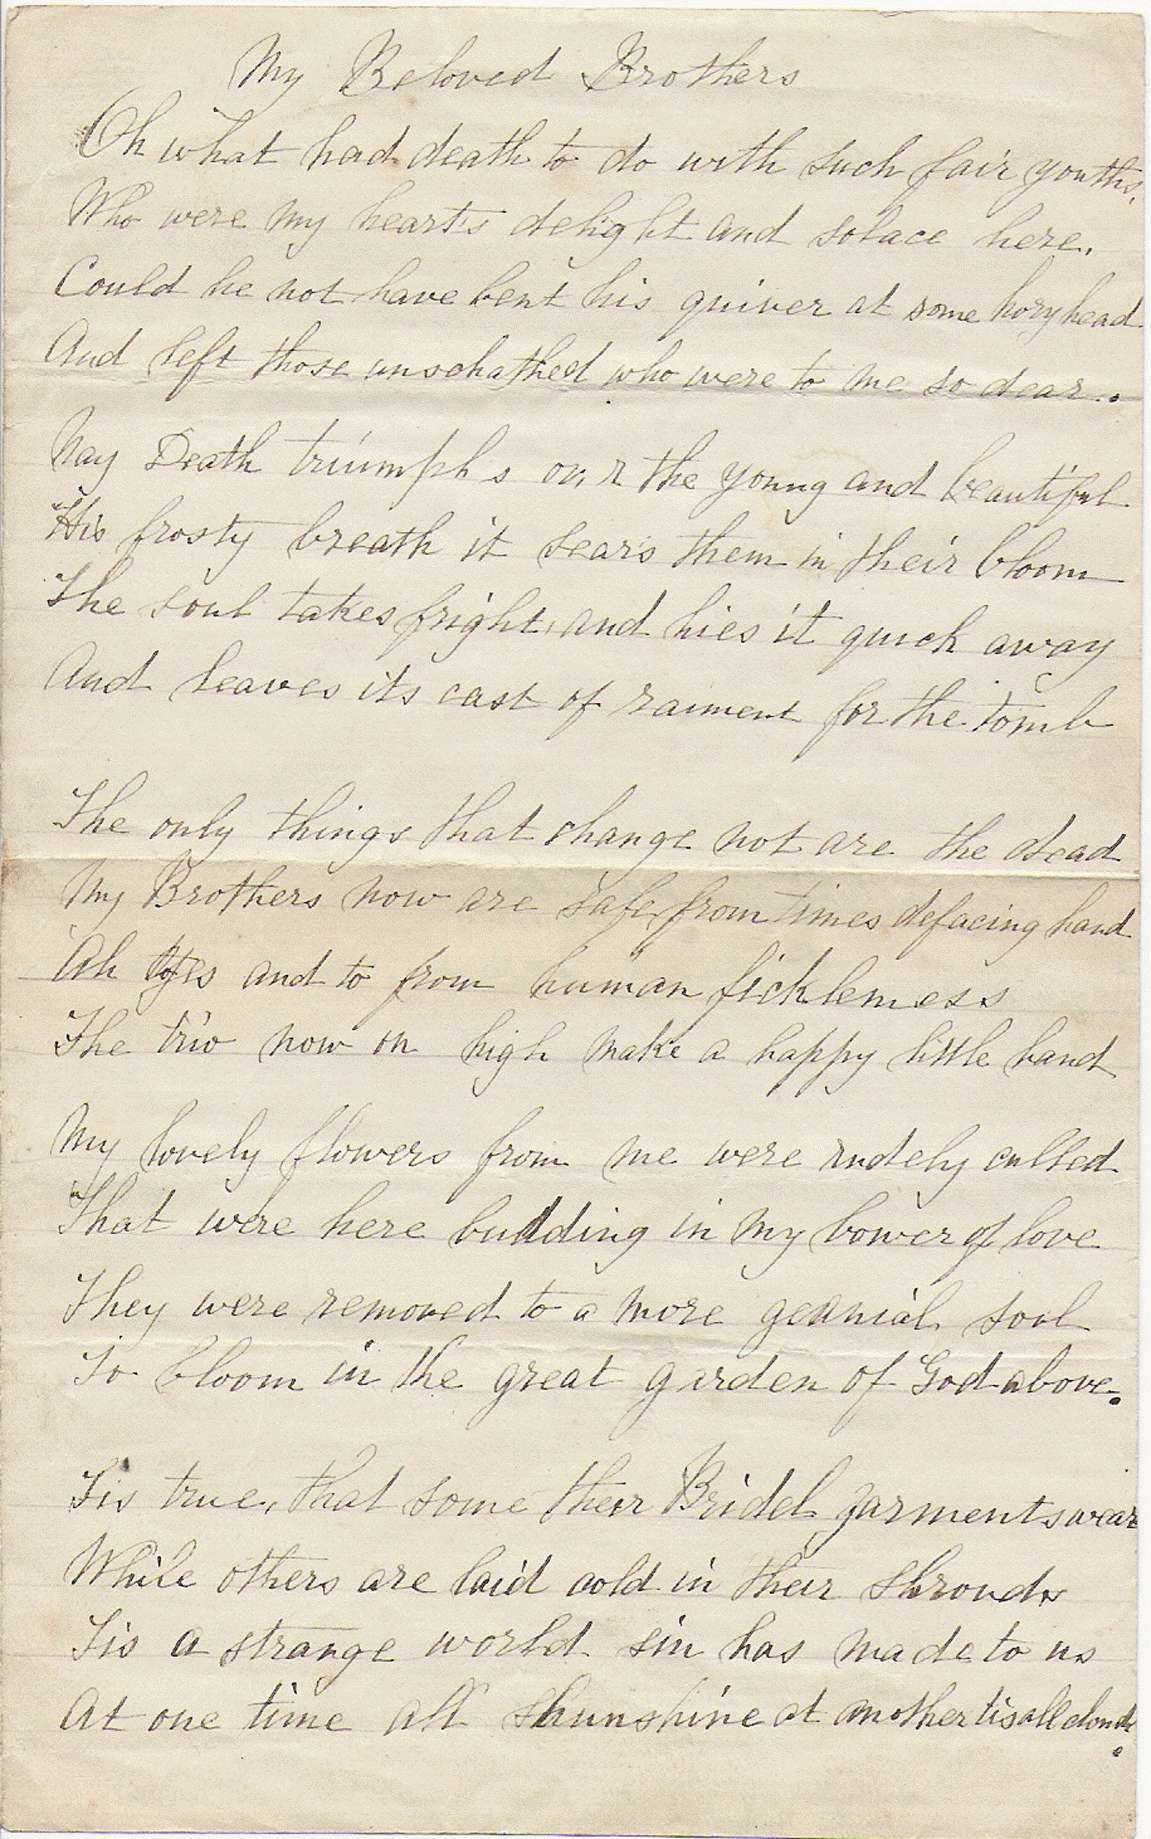 My Beloved Brothers
Oh what had death to do with such fair youths,
Who were my heart's delight and solace here.
Could he not have bent his quiver at some hory head
And left those unschathed who were to me so dear.
Nay Death triumphs ov,r the young and beautiful
His frosty breath it sears them in their bloom
The soul takes fright, and hies it quick away
And leaves its cast of raiment for the tomb
The only things that change not are the dead
My Brothers now are safe from times defacing hand
Ah yes and to from human ficklemess
The trio now on high make a happy little band
My lovely flowers from me were rudely culled
That were here budding in my bower of love
They were removed to a more geanial soul
To bloom in the great garden of God above.
Tis true, that some their Bridel garments wear
While others are laid cold in their shrouds
Tis a strange world sin has made to us
At one time all shunshine at another tis all clouds.